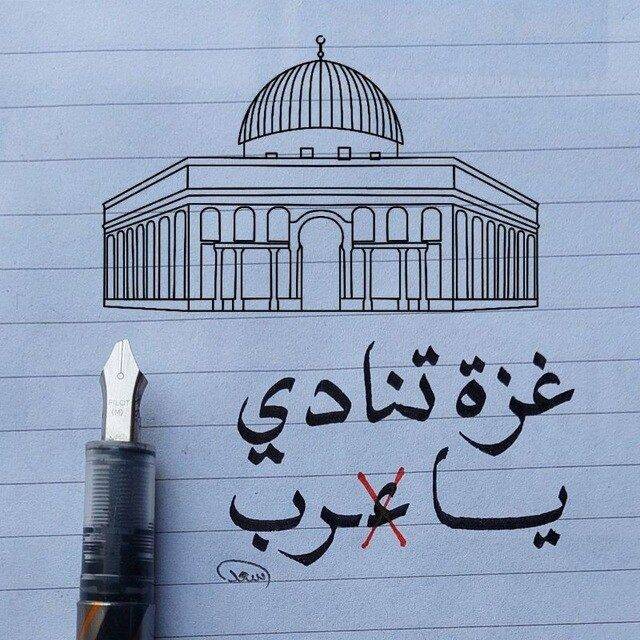 غزة تنادي
يا عرب
سعد
PILOT
(M)